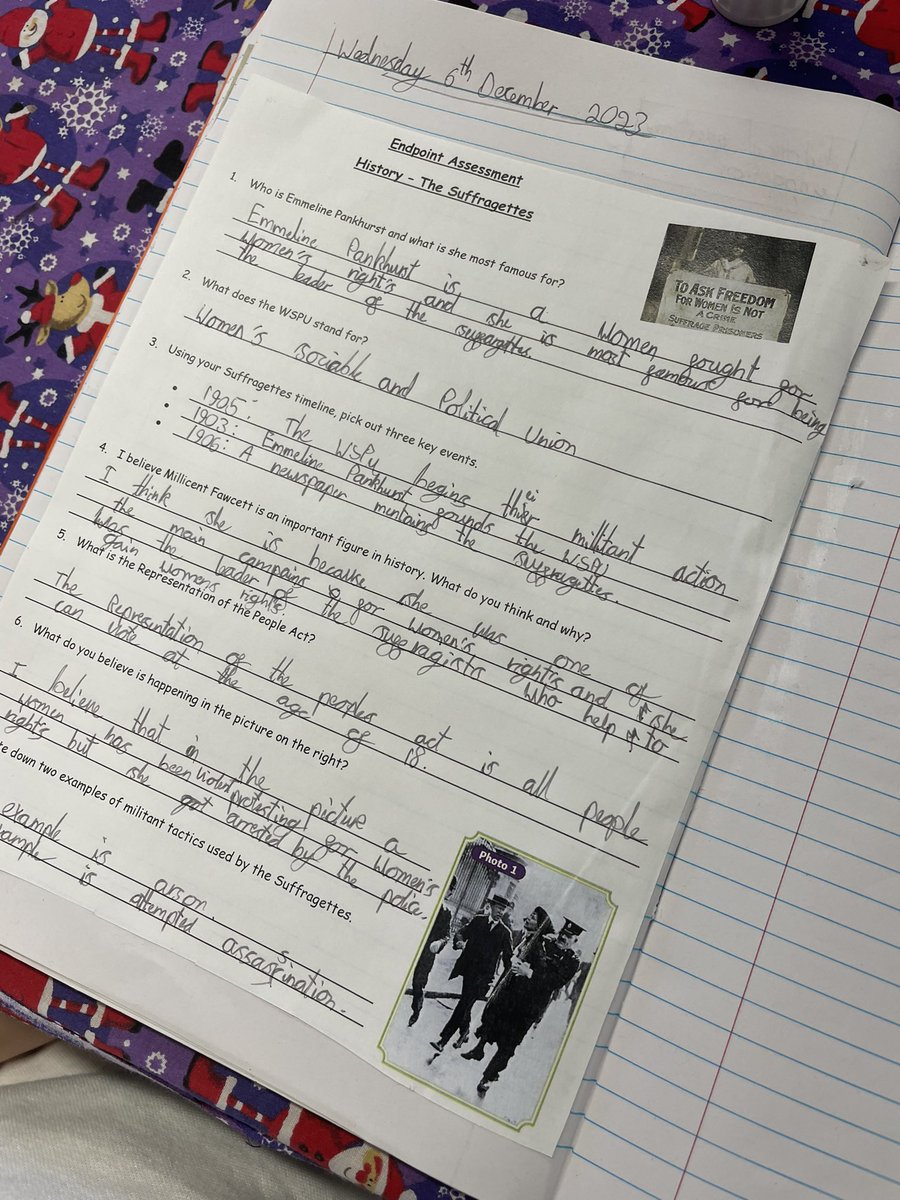 Wednesday 6th December 2023
Endpoint Assessment
History - The Suffragettes
1. Who is Emmeline Pankhurst and what is she most famous for?
Emmeline Pankhunt is a women fought for
Women's right's and she is most fambusr for being
the leader of the suffragettes
TO ASK FREEDOM
FOR WOMEN IS NOT
A CRIME
SUFFRAGE PRISONERS
2. What does the WSPU stand for?
Women's sociable and Political Union
3. Using your Suffragettes timeline, pick out three key events.
• 1905: The WSPU begins thier militant action
• 1903: Emmeline Pankhurst founds the WSPU
• 1906: A newspaper mentaing the suffragettes
4. I believe Millicent Fawcett is an important figure in history. What do you think and why?
I think she is because she was one of
the main campains for women's right's and she
was the leader of the suffragists who help to
gain womens rights.
5. What is the Representation of the People Act?
The Representation of the peoples act is all people
can vote at the age of 18.
6. What do you believe is happening in the picture on the right?
I believe that in the picture a
women has been violent protesting for women's
rights but she got arrested by the police.
te down two examples of militant tactics used by the Suffragettes.
example is arson.
example is attempted assassination.
Photo 1